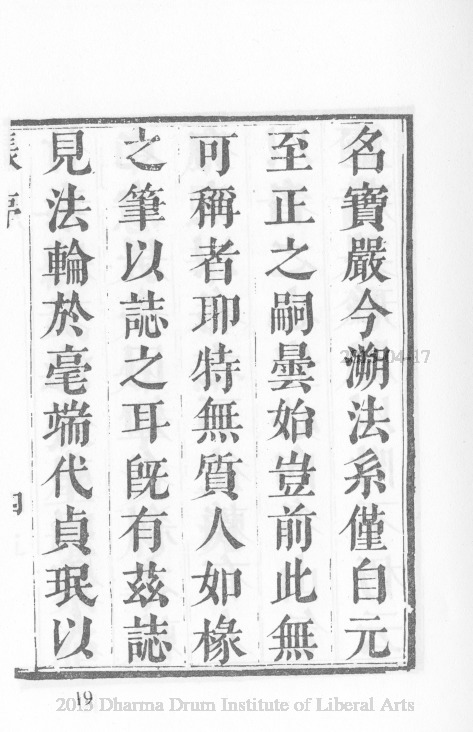 名寶嚴今溯法系僅自元
至正之嗣曇始豈前此無
可稱者耶特無質人如椽
之筆以誌之耳既有茲誌
見法輪於毫端代貞珉以
19
2013 Dharma Drum Institute of Liberal Arts